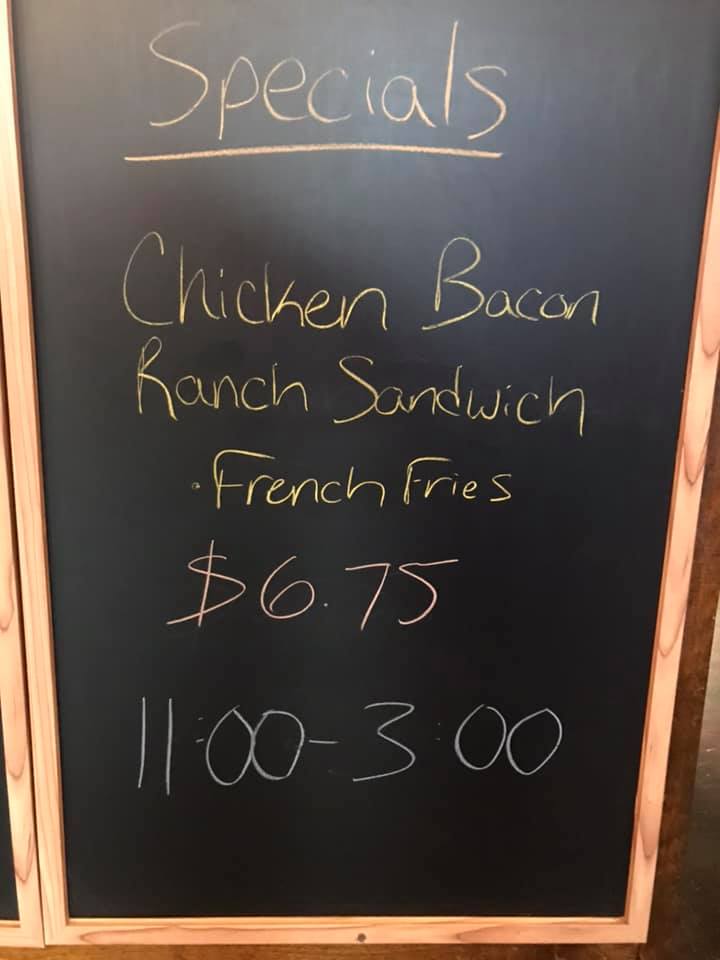 Specials
Chicken Bacon
Ranch Sandwich
· French Fries
$6.75
11:00-3:00